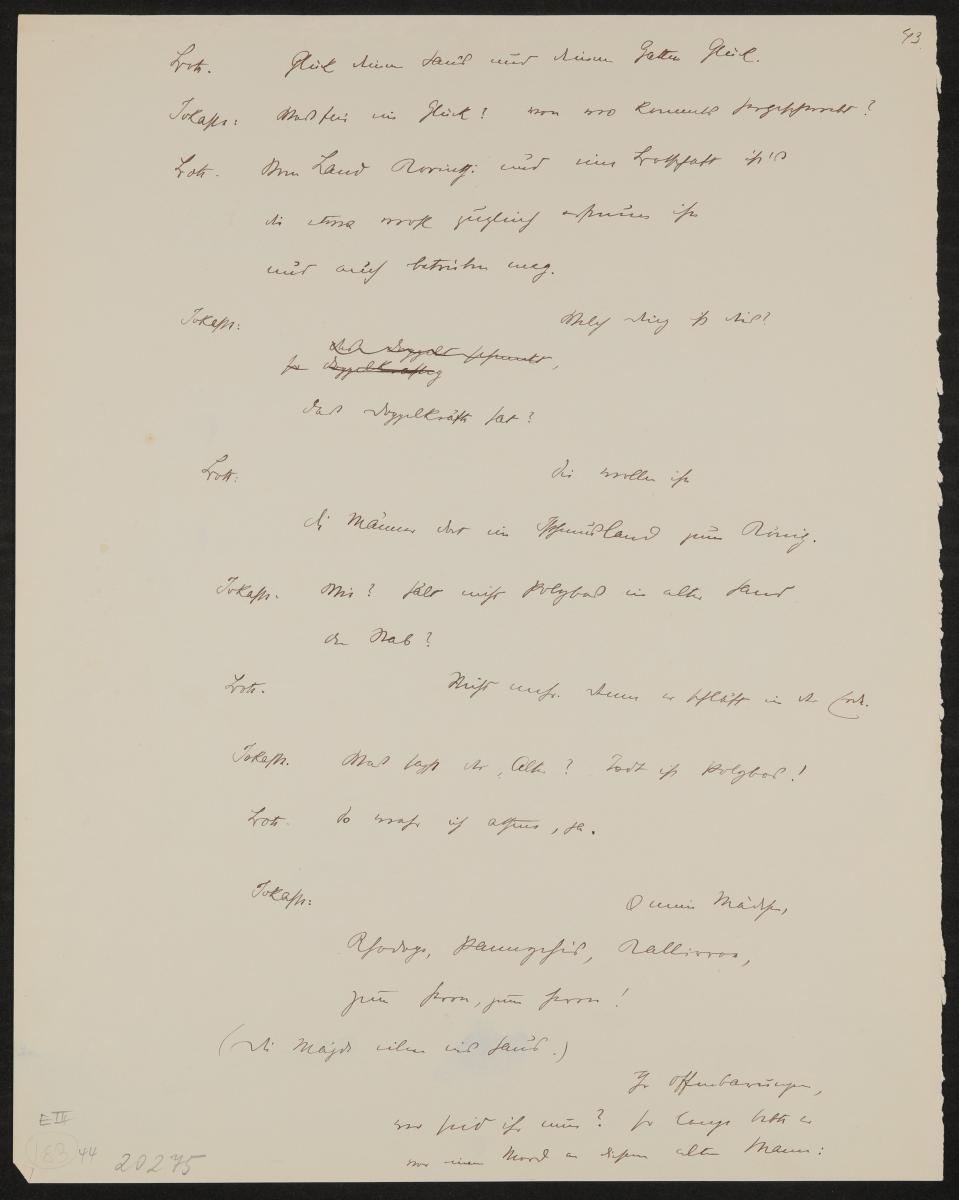 43
Bote. Glück deinem Haus und deinem Gatten Glück.
Jokaste: Was für ein Glück? von wo kommend hergeschneit?
Bote. Vom Land Korinth: und eine Botschaft ist's
die etwa wohl zugleich erfreuen ihn
und auch betrüben mag.
Jokaste: Welch Ding ist dies?
das doppelt,
so doppelkräftig
das Doppelkräfte hat?
Bote: Sie wollen ihn
die Männer dort im Isthmusland zum König.
Jokaste. Wie? hält nicht Polybos in alter Hand
den Stab?
Bote. Nicht mehr. denn er schläft in der Erde.
Jokaste. Was sagst du, Alter? Todt ist Polybos!
Bote. So wahr ich athme, ja.
Jokaste: O meine Mädchen,
Rhodope, Kallirroe,
zum Herrn, zum Herrn!
(die Mägde eilen ins Haus.)
Ihr Offenbarungen,
wo seid ihr nun? so lange bebte er
vor einem Mord an diesem alten Mann:
E III
183 44
20275